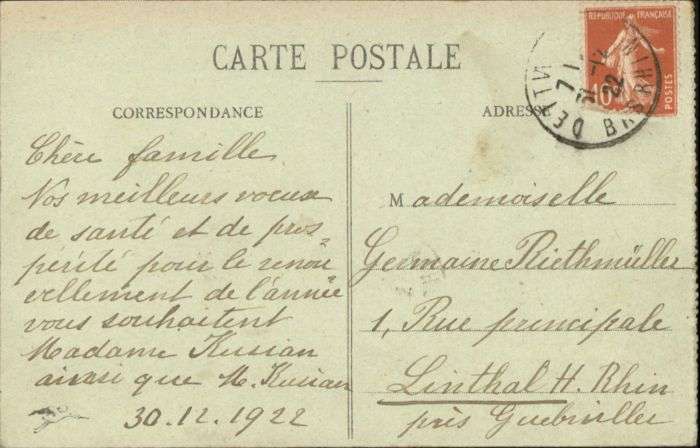 CARTE POSTALE
CORRESPONDANCE
Chère famille
Nos meilleurs voeux
de santé et de pros=
périté pour le renou
vellement de l'année
vous souhaitent
Madame Kusian
ainsi que M. Kusian
30.12.1922
ADRESSE
RÉPUBLIQUE FRANÇAISE
10
POSTES
Mademoiselle
Germaine Riethmüller
1, Rue principale
Linthal H. Rhin
près Guebwiller